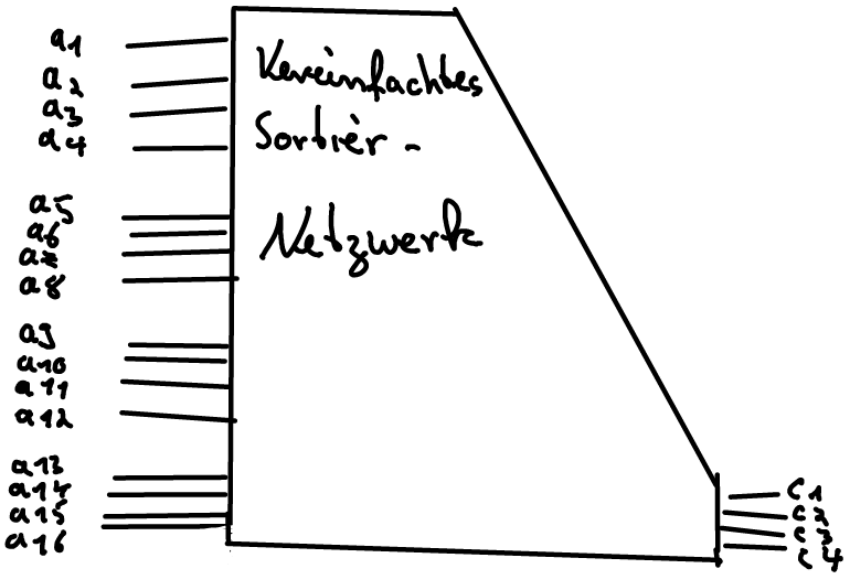 a1
a2
a3
a4
a5
a6
a7
a8
a9
a10
a11
a12
a13
a14
a15
a16
Vereinfachtes
Sortier-
Netzwerk
c1
c2
c3
c4